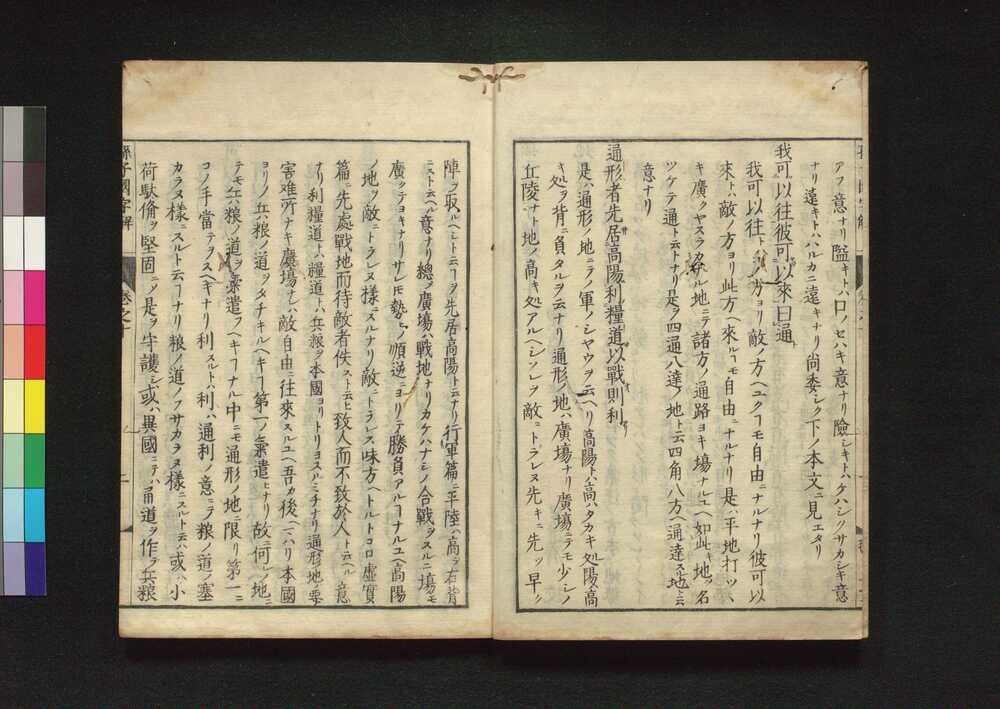 アフ意ナリ隘キトハ口ノセハキ意ナリ險シキトハケハシクサカシキ意
ナリ遠キトハハルカニ遠キナリ尚委シク下ノ本文ニ見エタリ
我可以往彼可以來曰通
我可以往トハ我方ヨリ敵ノ方ヘユクヿモ自由ニナルナリ彼可以
來トハ敵ノ方ヨリ此方ヘ來ルヿモ自由ニナルナリ是ハ平地打ツヽ
キ廣クヤスラカナル地ニテ諸方ノ通路ヨキ場ナルユヘ如此キ地ヲ名
ツケテ通ト云トナリ是ヲ四通八達ノ地ト云四角八方ヘ通達スル地ト云
意ナリ
通形者先居高陽利糧道以戰則利
是ハ通形ノ地ニテノ軍ノシヤウヲ云ヘリ高陽トハ高ハタカキ処陽高
キ処ヲ背ニ負タルヲ云ナリ通形ノ地ハ廣塲ナリ廣塲ニテモ少シノ
丘陵ナト地ノ高キ処アルヘシソレヲ敵ニトラレヌ先キニ先ツ早ク
陣ヲ取ルヘシト云ヿヲ先居高陽ト云ナリ行軍篇ニ平陸ハ高ヲ右背
ニスト云ヘル意ナリ總テ廣塲ハ戰地ナリカケハナシノ合戰ヲスルニ塲モ
廣クテヨキナリサレ𪜈勢ヒノ順逆ニヨリテ勝負アルヿナルユヘ高陽
ノ地ヲ敵ニトラレヌ樣ニスルナリ敵ニトラレス味方ヘトルトコロ虚實
篇ニ先處戰地而待敵者佚スト云ヒ致人而不致於人ト云ヘル意
ナリ利糧道トハ糧道ハ兵粮ヲ本國ヨリトリヨスルミチナリ通形ノ地ハ要
害難所ナキ廣塲ナレハ敵自由ニ往來スルユヘ吾カ後ヘマハリ本國
ヨリノ兵粮ノ道ヲタチキルヘキヿ第一ノ氣遣ヒナリ故ニ何レノ地ニ
テモ兵粮ノ道ヲ氣遣フヘキヿナル中ニモ通形ノ地ニ限リ第一ニ
コノ手當テヲスヘキナリ利スルトハ利ハ通利ノ意ニテ粮ノ道ノ塞
カラヌ樣ニスルト云ヿナリ粮ノ道ノフサカラヌ樣ニスルト云ハ或ハ小
荷駄備ヲ堅固ニシ是ヲ守護シ或ハ異國ニテハ甬道ヲ作テ兵粮
孫子國字解